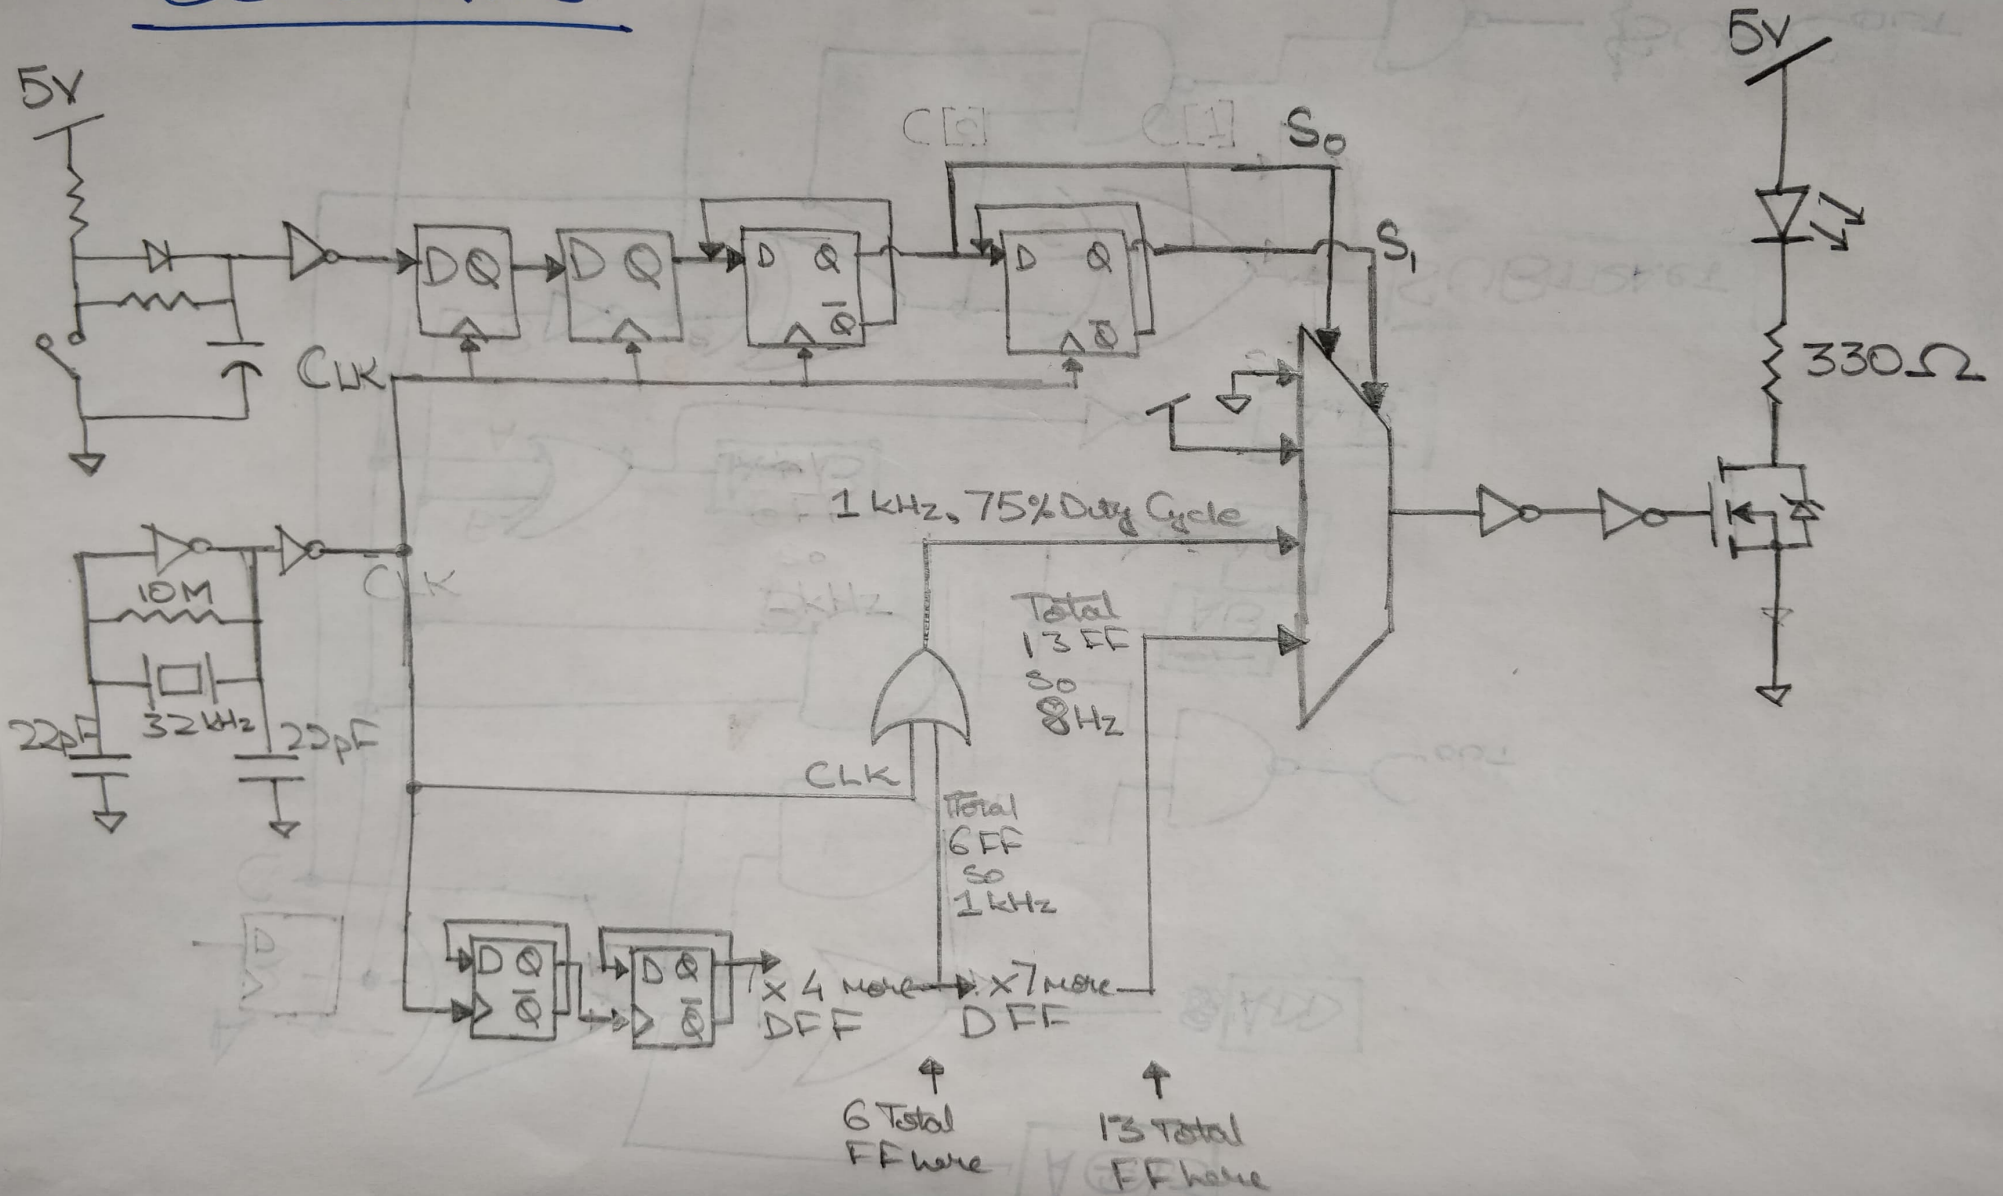 5V
5V
C[0]
C[1]
S0
S1
D Q
D Q
D Q
Q̅
D Q
Q̅
CLK
330Ω
1 kHz, 75% Duty Cycle
CLK
10M
32kHz
22pF
22pF
Total
13 FF
so
8Hz
CLK
Total
6 FF
so
1kHz
D Q
Q̅
D Q
Q̅
x 4 more
DFF
x7 more
DFF
6 Total
FF here
13 Total
FF here